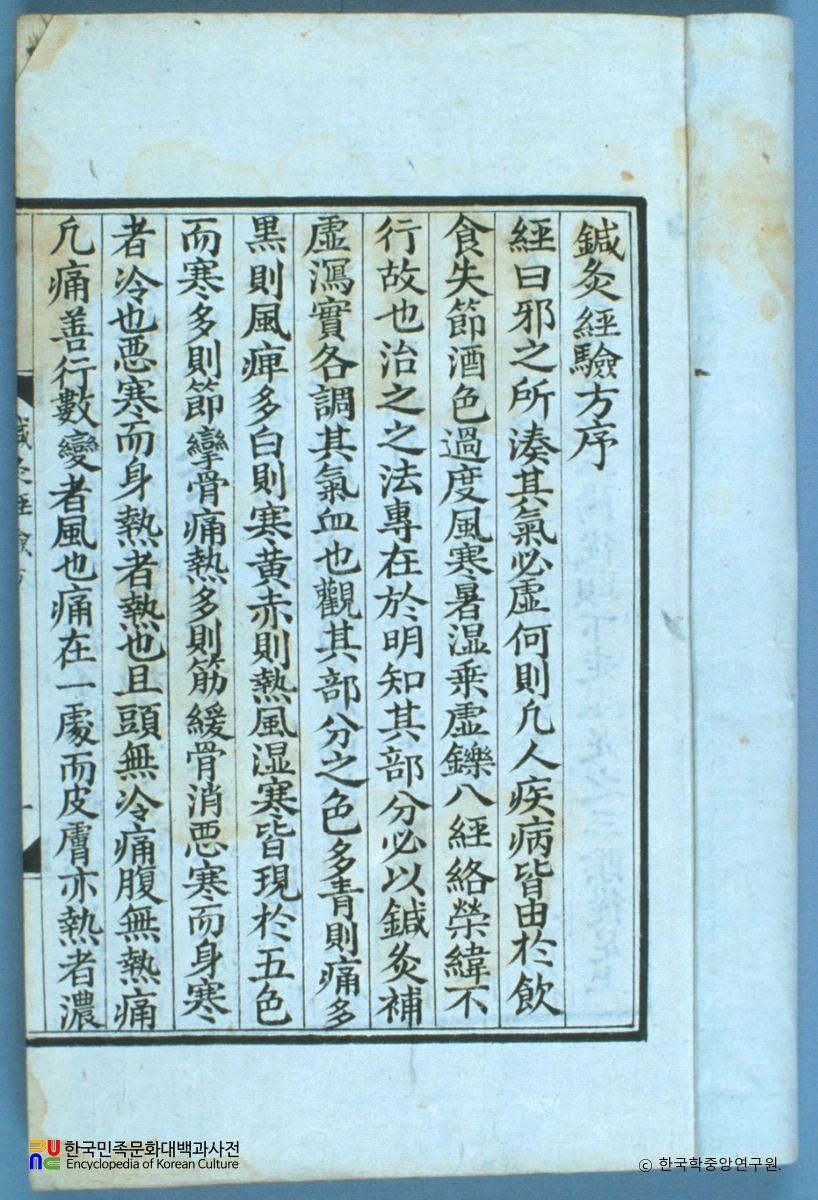 鍼灸經驗方序
經曰邪之所湊其氣必虛何則凢人疾病皆由於飮
食失節酒色過度風寒暑湿乗虛鑠八經絡榮緯不
行故也治之之法專在於明知其部分必以鍼灸補
虛瀉實各調其氣血也觀其部分之色多青則痛多
黒則風痺多白則寒黄赤則熱風湿寒皆現於五色
而寒多則節攣骨痛熱多則筋緩骨消悪寒而身寒
者冷也悪寒而身熱者熱也且頭無冷痛腹無熱痛
凢痛善行數變者風也痛在一處而皮膚亦熱者濃
鍼灸經驗方
一
한국민족문화대백과사전
Encyclopedia of Korean Culture
ⓒ 한국학중앙연구원